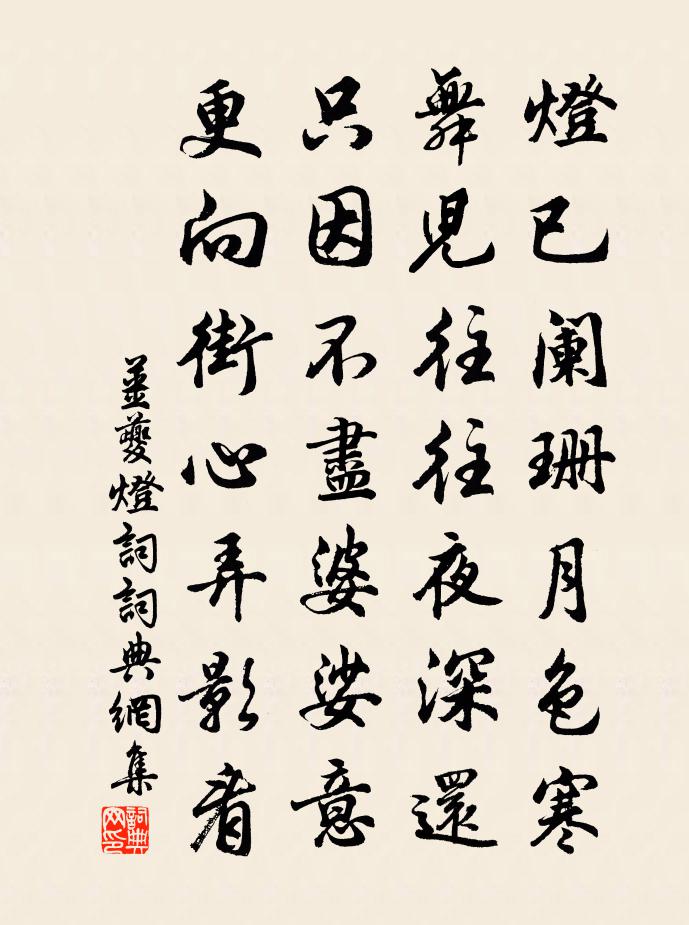 燈已阑珊月色寒
舞児往往夜深還
只因不盡婆娑意
更向街心弄影看
姜夔燈詞詞典網集
詞典网印